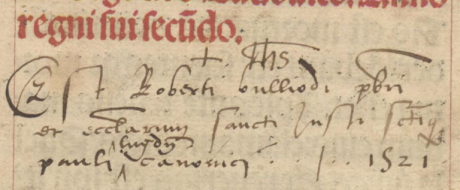 regni sui secūdo.
+ Jhs
Est Roberti vulliodi p̄bri
et eccl̄iarum sancti Justi sctīq̄
pauli lugdn̄ canonici . . | . 1521